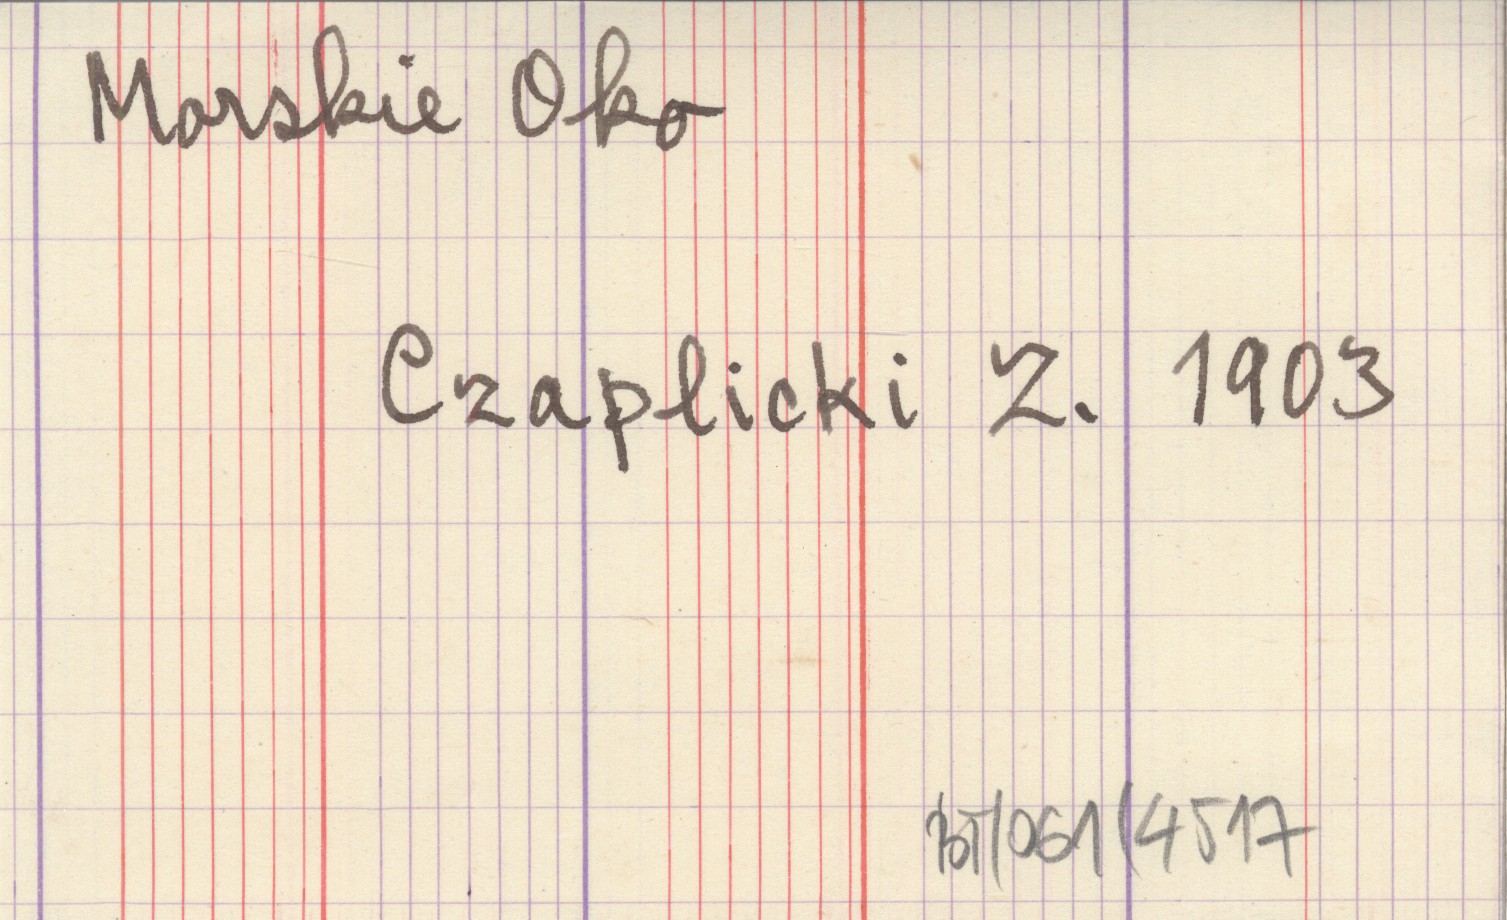 Morskie Oko
Czaplicki Z. 1903
/061/4517